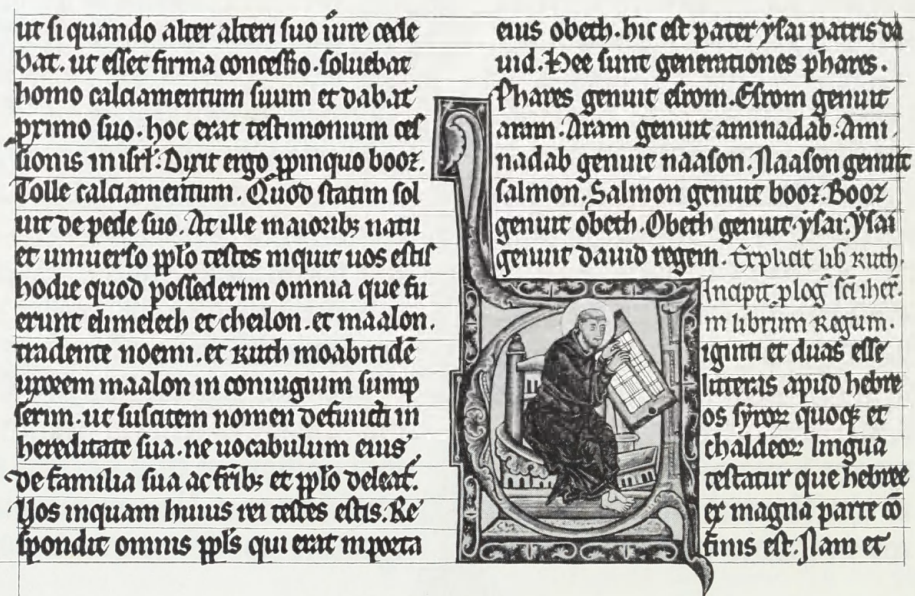 ut si quando alter alteri suo iure cede
bat. ut esset firma concessio. soluebat
homo calciamentum suum et dabat
pximo suo. hoc erat testimonium ces
sionis in isrl'. Dixit ergo ppinquo booz.
Tolle calciamentum. Quod statim sol
uit de pede suo. At ille maiorib; natu
et uniuerso pplo testes inquit uos estis
hodie quod possederim omnia que fu
erunt elimelech et cheilon. et maalon.
tradente noemi. et Ruth moabitidē
uxorem maalon in coniugium sump
serim. ut suscitem nomen defuncti in
hereditate sua. ne uocabulum eius
de familia sua ac frib; et pplo deleat.
Vos inquam huius rei testes estis. Re
spondit omnis ppls qui erat in porta
eius obeth. hic est pater ysai patris da
uid. Hee sunt generationes phares.
Phares genuit esrom. Esrom genuit
aram. Aram genuit aminadab. Ami
nadab genuit naason. Naason genuit
salmon. Salmon genuit booz. Booz
genuit obeth. Obeth genuit ysai. Ysai
genuit dauid regem. Explicit lib Ruth.
Incipit plog' sci iher'.
in librum Regum.
iginti et duas esse
litteras apud hebre
os syroꝝ quoqꝫ et
chaldeoꝝ lingua
testatur que hebree
ex magna parte cō
finis est. Nam et